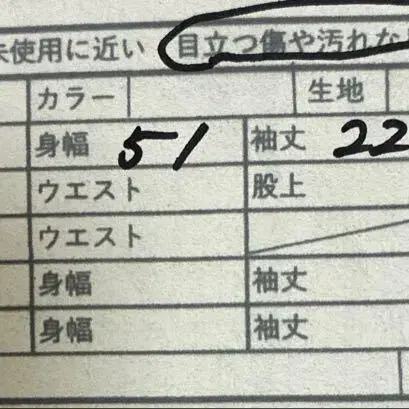 未使用に近い 目立つ傷や汚れな
カラー 生地
身幅 51 袖丈 22
ウエスト 股上
ウエスト
身幅 袖丈
身幅 袖丈